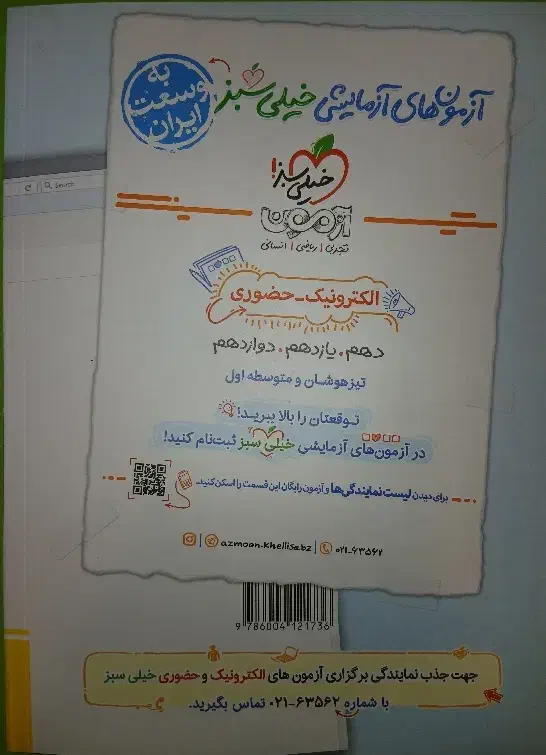 آزمون‌های آزمایشی خیلی سبز
به وسعت ایران
Search
خیلی سبز!
آزمون
تجربی | ریاضی | انسانی
الکترونیک - حضوری
دهم . یازدهم . دوازدهم
تیزهوشان و متوسطه اول
توقعتان را بالا ببرید!
در آزمون‌های آزمایشی خیلی سبز ثبت‌نام کنید!
برای دیدن لیست نمایندگی‌ها و آزمون رایگان این قسمت را اسکن کنید.
azmoon.kheilisabz | ۰۲۱-۶۳۵۶۲
9 786004 121736
جهت جذب نمایندگی برگزاری آزمون های الکترونیک و حضوری خیلی سبز
با شماره ۶۳۵۶۲-۰۲۱ تماس بگیرید.